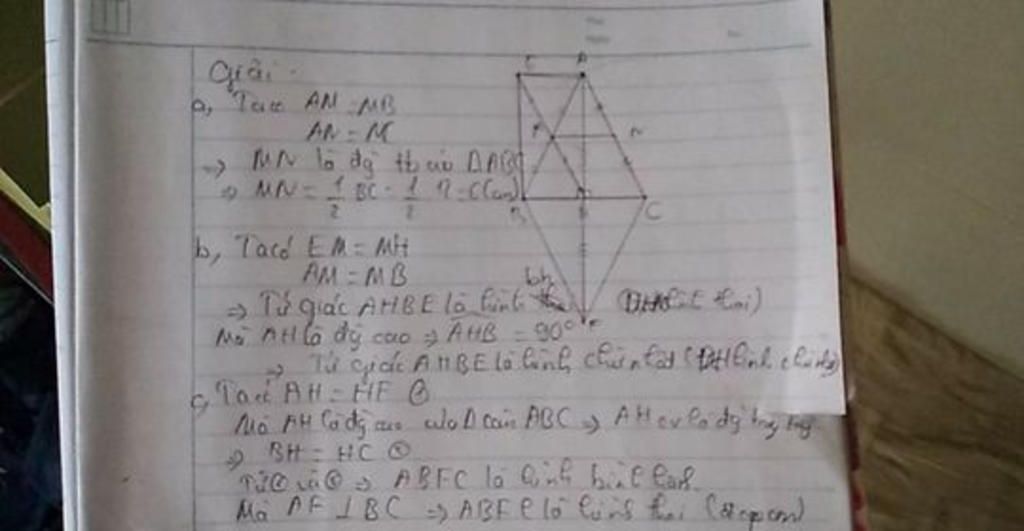 Giải.
a, Ta có AM = MB
AN = NC
=> MN là đg tb của ΔABC
=> MN = 1/2 BC = 1/2
b, Ta có EM = MH
AM = MB
=> Tứ giác AHBE là hình bh
Mà AH là đg cao => AHB = 90°
=> Tứ giác AHBE là hình chữ nhật (DH hình chữ
c, Ta có AH = HF ①
Mà AH là đg cao của Δ cân ABC => AH cx là đg
=> BH = HC ②
Từ ① và ② => ABFC là hình bình hành
Mà AF ⊥ BC => ABFC là hình thoi (đpcm)
E A
N
B C
F